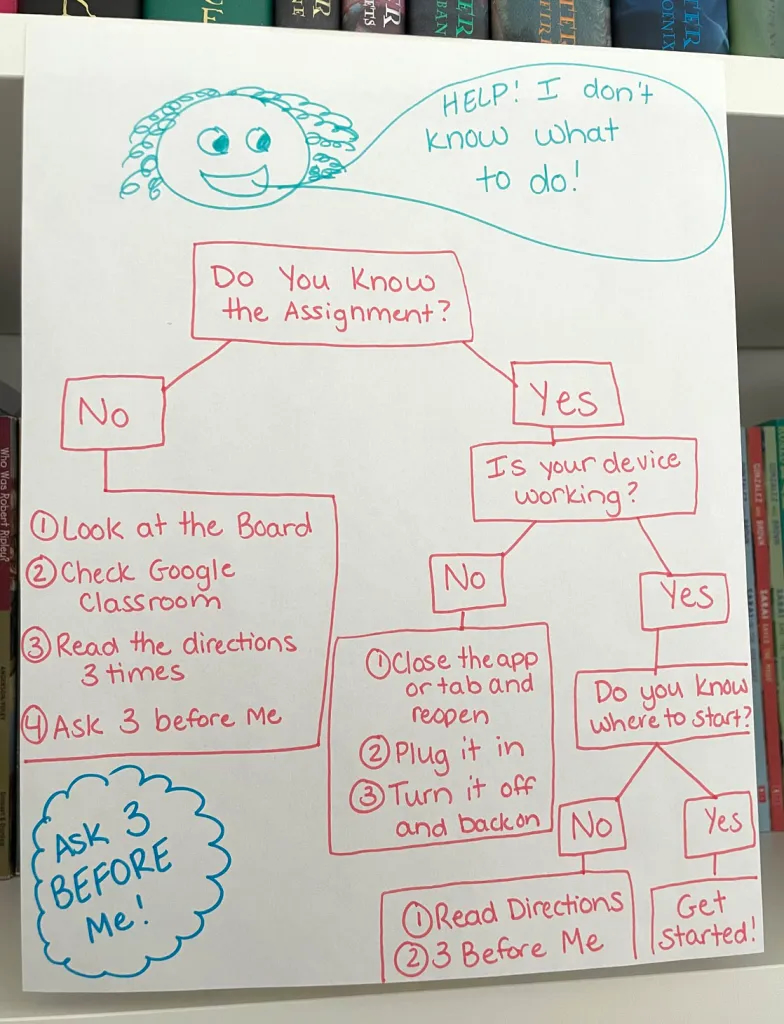 HELP! I don't
know what
to do!
Do You Know
the Assignment?
No
Yes
① Look at the Board
② Check Google
Classroom
③ Read the directions
3 times
④ Ask 3 before Me
Is your device
working?
No
Yes
① Close the app
or tab and
reopen
② Plug it in
③ Turn it off
and back on
Do you know
where to start?
No
Yes
① Read Directions
② 3 Before Me
Get
Started!
ASK 3
BEFORE
Me!
Who Was Robert Ripley?
PHOENIX
FIRE